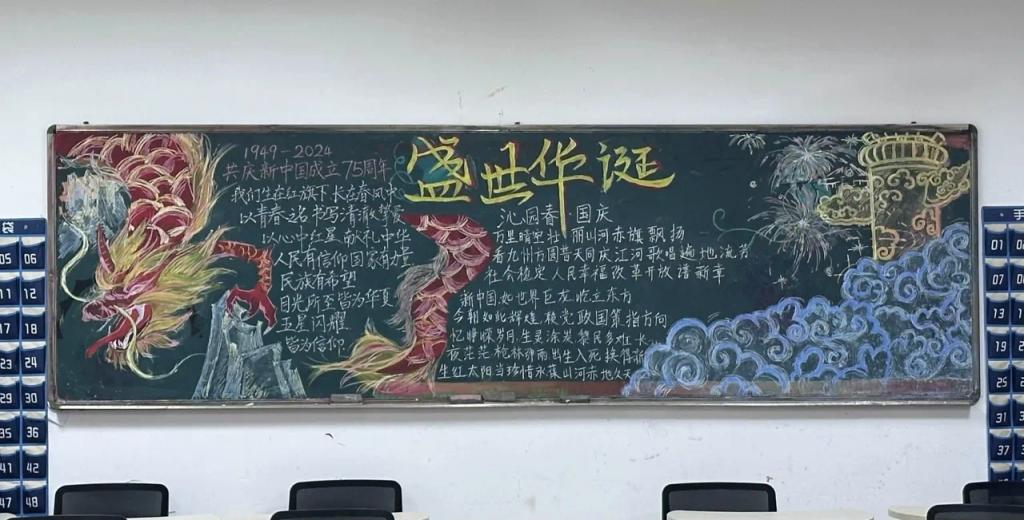 盛世华诞
1949-2024
共庆新中国成立75周年
我们生在红旗下长在春风中
以青春之名书写清澈挚爱
以心中红星献礼中华
人民有信仰国家有力量
民族有希望
目光所至皆为华夏
五星闪耀
皆为信仰
沁园春 国庆
万里晴空壮丽山河赤旗飘扬
看九州方圆普天同庆江河歌唱遍地流芳
社会稳定人民幸福改革开放谱新章
新中国如世界巨龙屹立东方
今朝如此辉煌 赖党政国策指方向
忆峥嵘岁月生灵涂炭黎民多难长
夜茫茫枪林弹雨出生入死换得新
生红太阳当珍惜永葆山河赤地久天
袋
05 06
11 12
17 18
23 24
29 30
35 36
41 42
47 48
手
01
07
13
19
25
31
37